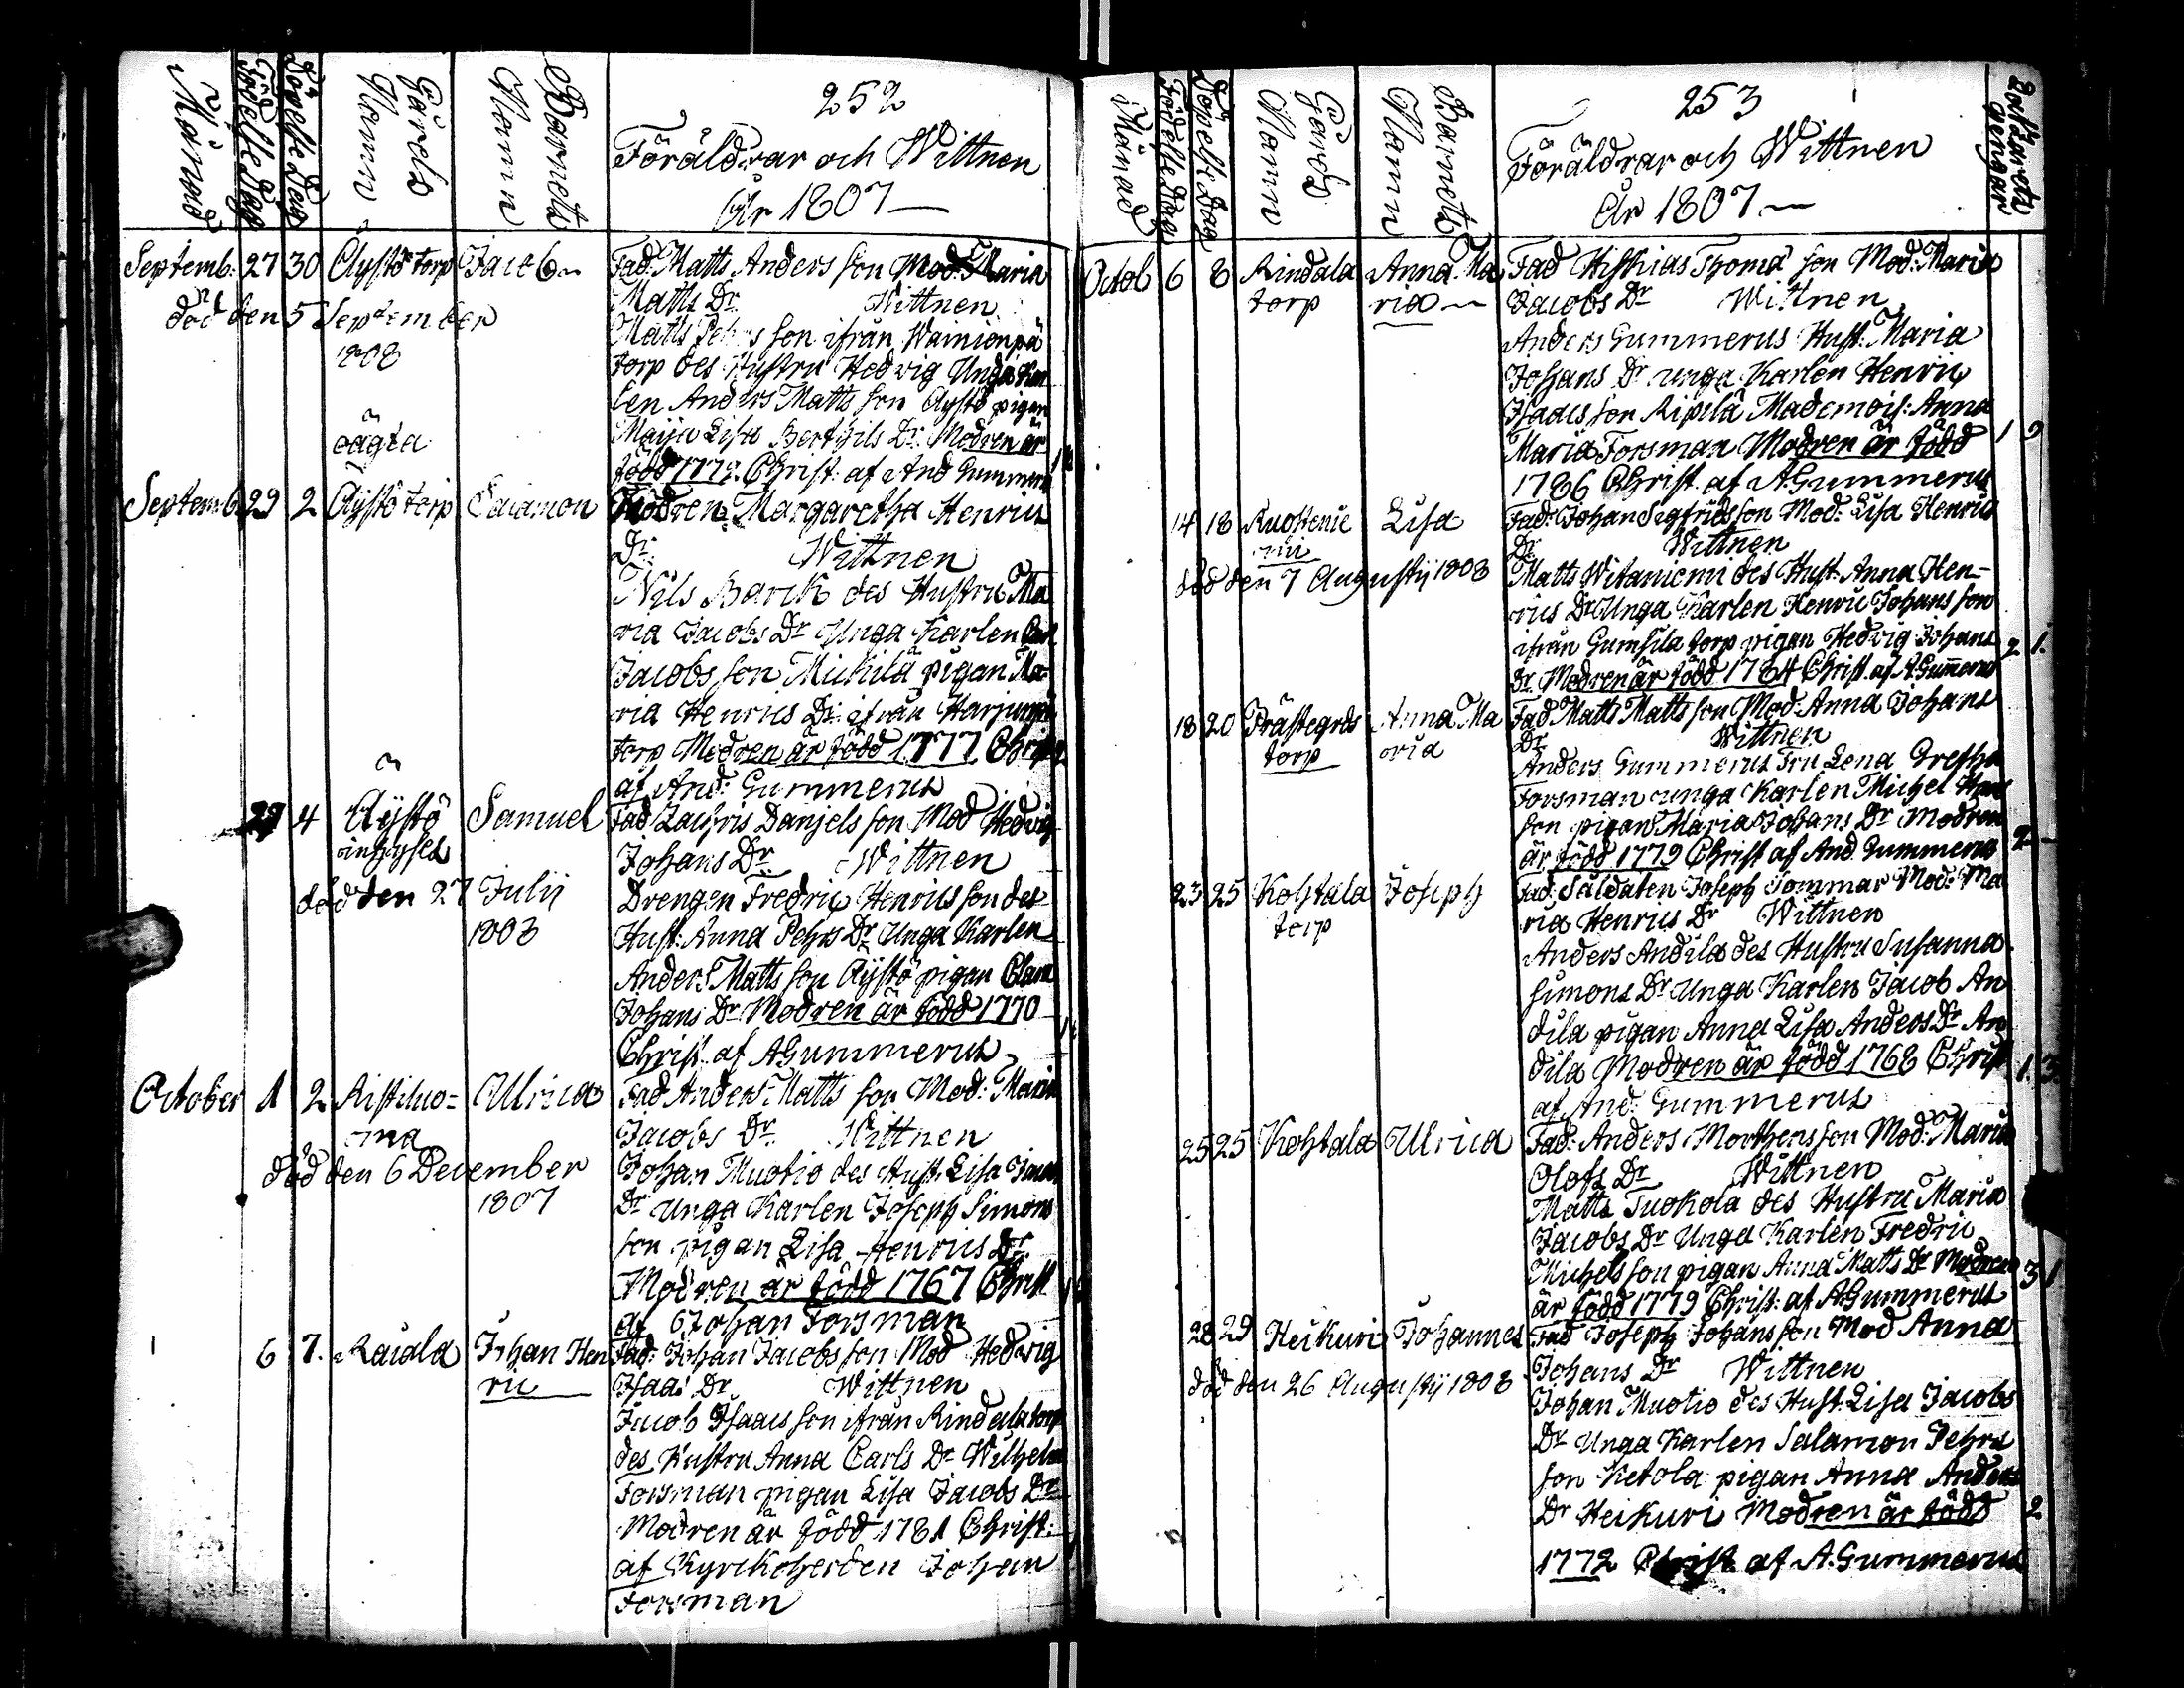 Månad
Födelse Dag
Döpelse Dag
Gårds Namn
Barnets Namn
252
Föräldrar och Wittnen
År 1807
Septemb: 27 30 Äystö torp Jacob
död den 5 September
1808
oägta
Fad: Matts Anders son Mod: Maria
Matts Dr. Wittnen
Matts Pehrs son ifrån Wainionpä
torp des Hustru Hedwig Unga Kar
len Anders Matts son Äystö pigan
Maija Lisa Berthils Dr. Modren är
född 1772. Christ: af And Gummerus
Septemb 29 2 Äystö torp Salamon
Modren Margaretha Henrics
Dr. Wittnen
Nils Barck des Hustru Ma
ria Jacobs Dr Unga Karlen
Jacobs son Mickilä pigan Ma
ria Henrics Dr. ifrån
torp Modren är född 1777 Christ
af And: Gummerus
29 4 Äystö Samuel
inhyses
död den 27 Julii
1808
Fad Zachris Danjels son Mod Hedwig
Johans Dr. Wittnen
Drengen Fredric Henrics son des
Hust: Anna Pehrs Dr. Unga Karlen
Anders Matts son Äystö pigan Clara
Johans Dr. Modren är född 1770
Christ. af A Gummerus
October 1 2 Ristiluo=
ma
Ulrica
död den 6 December
1807
Fad Anders Matts son Mod: Maria
Jacobs Dr. Wittnen
Johan Muotio des Hust. Lisa Jacobs
Dr Unga Karlen Joseph Simons
son pigan Lisa Henrics Dr
Modren är född 1767 Christ
af Johan Forsman
6 7. Raiala Johan Hen
ric
Fad: Johan Jacobs son Mod Hedvig
Isaacs Dr Wittnen
Jacob Isaacs son ifrån Rindala torp
des Hustru Anna Carls Dr Wilhelm
Forsman pigan Lisa Jacobs Dr
Modren är född 1781 Christ:
af Kyrckoherden Johan
Forsman
Månad
Födelse Dag
Döpelse Dag
Gårds Namn
Barnets Namn
253
Föräldrar och Wittnen
År 1807
Octob 6 8 Rindala
torp
Anna Ma
ria
Fad Hiskias Thomä son Mod: Maria
Jacobs Dr Wittnen
Anders Gummerus Hust: Maria
Johans Dr unga Karlen Henric
Isaacs son Ripilä Mademois: Anna
Maria Forsman Modren är född 1 2
1786 Christ. af A Gummerus
14 18 Lisa
död den 7 Augustij 1808
Fad: Johan Sigfrids son Mod: Lisa Henrics
Dr Wittnen
Matts Witaniemi des Hust: Anna Hen-
rics Dr Unga Karlen Henric Johans son
ifrån Gumsila torp pigan Hedvig Johans 2 1.
Dr. Modren är född 1764 Christ. af A Gummerus
18 20 Prästegrds
torp
Anna Ma
ria
Fad: Matts Matts son Mod: Anna Johans
Dr Wittnen
Anders Gummerus Fru Lena Gretha
Forsman unga Karlen Michel
son pigan Maria Johans Dr Modren
är född 1779 Christ af And Gummerus 2 –
23 25 Kohtala
torp
Joseph
Fad: Saldaten Joseph Sommar Mod: Ma
ria Henrics Dr Wittnen
Anders Andila des Hustru Susanna
Simons Dr Unga Karlen Jacob An
dila pigan Anna Lisa Anders Dr An
dila Modren är född 1768 Christ 1. 3
af And: Gummerus
25 25 Kohtala Ulrica
Fad: Anders Morthens son Mod: Maria
Olofs Dr Wittnen
Matts Tuokola des Hustru Maria
Jacobs Dr Unga Karlen Fredric
Michels son pigan Anna Matts Dr Modren 3 1
är född 1779 Christ: af A Gummerus
28 29 Heikuri Johannes
död den 26 Augustij 1808
Fad Joseph Johans son Mod Anna
Johans Dr Wittnen
Johan Muotio des Hust: Lisa Jacobs
Dr Unga Karlen Salamon Pehrs
son Ketola pigan Anna Anders
Dr Heikuri Modren är född 2
1772 Christ af A. Gummerus